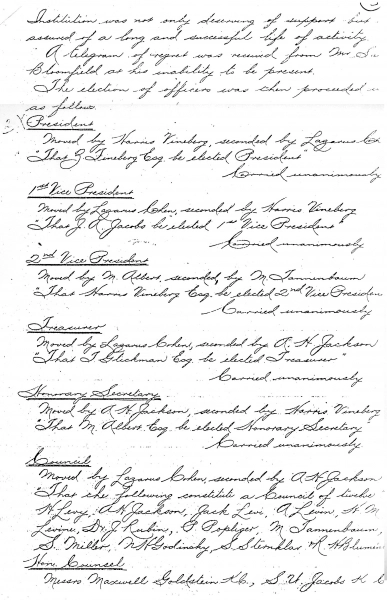 Institution was not only deserving of support but
assured of a long and successful life of activity.
A telegram of regret was received from Mr.
Bloomfield at his inability to be present.
The election of officers was then proceeded
as follows
President
Moved by Harris Vineberg, seconded by Lazarus
"That Z Fineberg Esq be elected President"
Carried unanimously
1st Vice President
Moved by Lazarus Cohen, seconded by Harris Vineberg
"That J. A. Jacobs be elected 1st Vice President"
Carried unanimously
2nd Vice President
Moved by M. Albert, seconded, by M Tannenbaum
"That Harris Vineberg Esq be elected 2nd Vice Presiden
Carried unanimously
Treasurer
Moved by Lazarus Cohen, seconded by A. H. Jackson
"That I Glickman Esq be elected Treasurer"
Carried unanimously
Honorary Secretary
Moved by A H Jackson, seconded by Harris Vineberg
"That M. Albert Esq be elected Honorary Secretary
Carried unanimously
Council
Moved by Lazarus Cohen, seconded by A H Jackson
"That the following constitute a Council of twelve
H Levy, A H Jackson, Jack Levi, A Levin, H M
Levine, Dr. J Rubin, P Popliger, M Tannenbaum,
S. Miller, S Sternklar
Hon. Counsel
Messrs Maxwell Goldstein K.C., S. W. Jacobs K